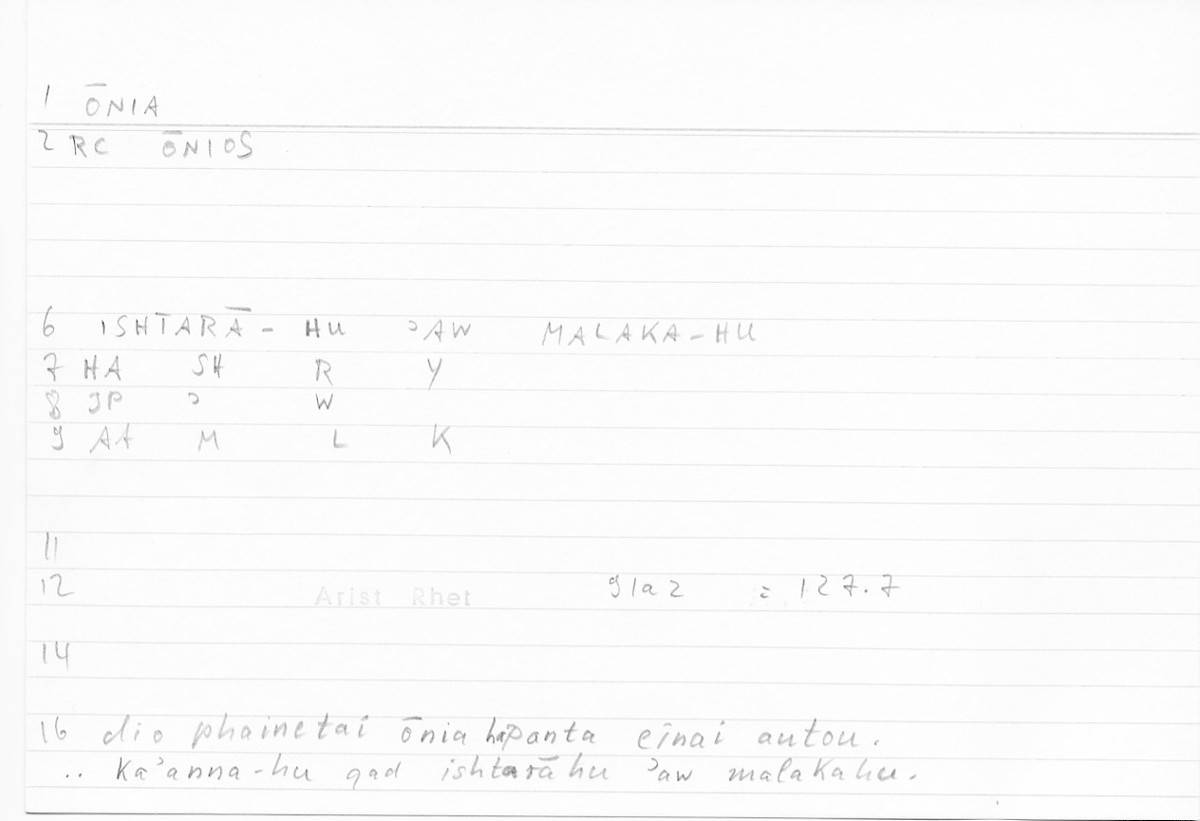 1 ŌNIA
2 RC ŌNIOS
6 ISHTARĀ- HU ʾAW MALAKA-HU
7 HA SH R Y
8 JP ʾ W
9 AA M L K
11
12 Arist Rhet 91a2 = 127.7
14
16 dio phainetai ōnia hapanta eînai autou.
.. Kaʾanna-hu qad ishtarāhu ʾaw malakahu.